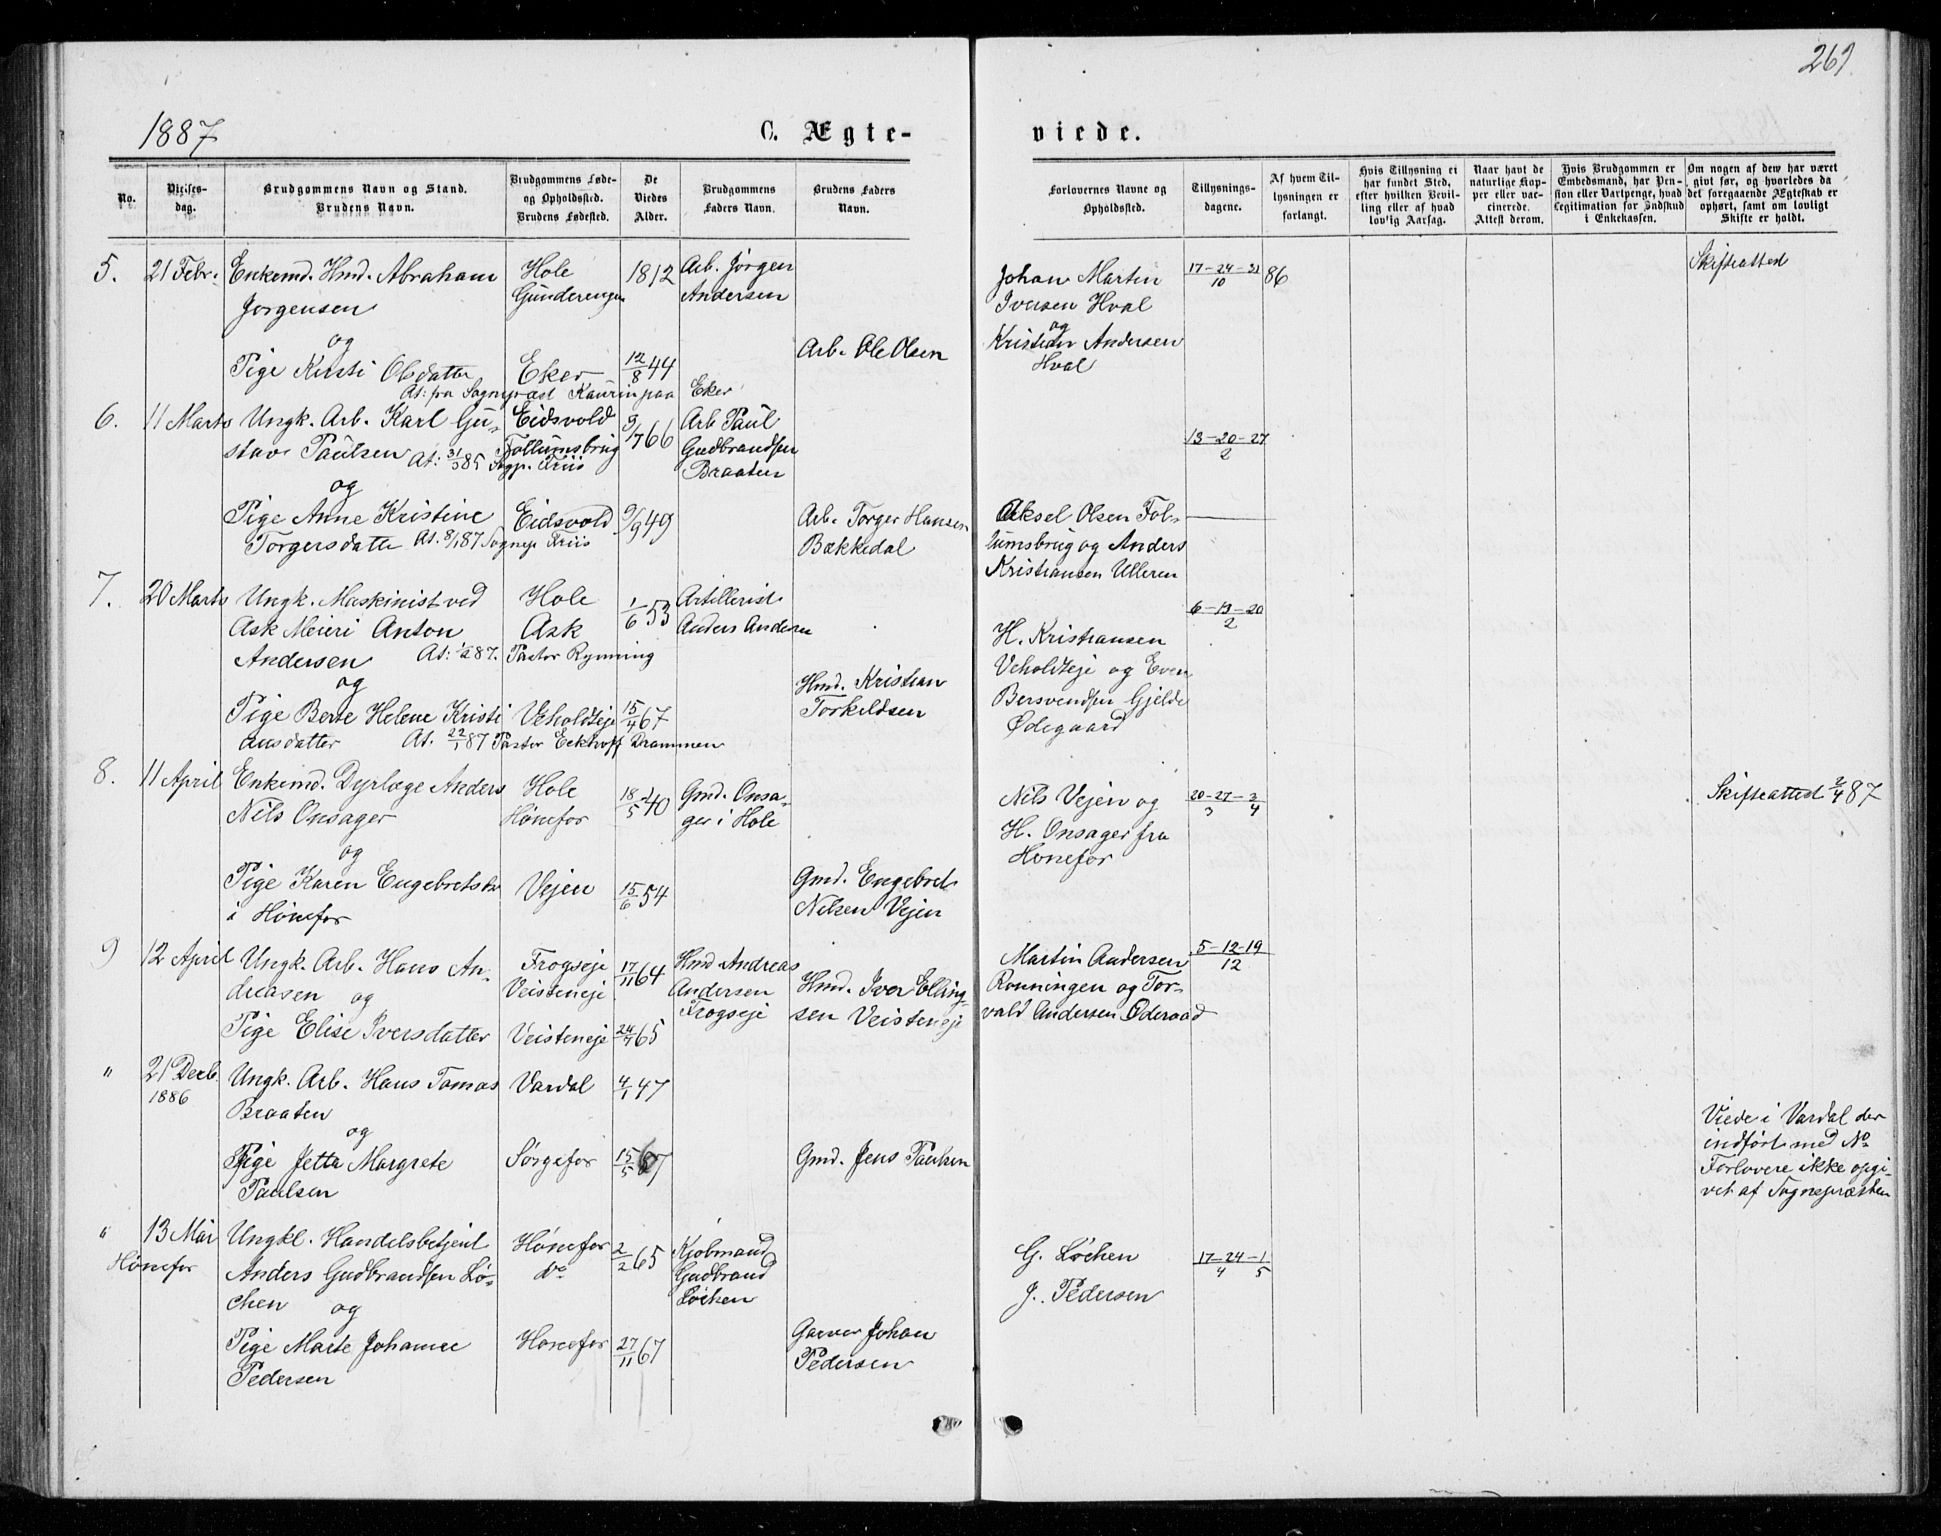 261
1887
C. Ægte-
viede.
No.
Vielses-
dag.
Brudgommens Navn og Stand.
Brudens Navn.
Brudgommens Føde-
og Opholdssted.
Brudens Fødested.
De
Viedes
Alder.
Brudgommens
Faders Navn.
Brudens Faders
Navn.
Forlovernes Navne og
Opholdssted.
Tillysnings-
dagene.
Af hvem Til-
lysningen er
forlangt.
Hvis Tillysning ei
har fundet Sted,
efter hvilken Bevil-
ling eller af hvad
lovlig Aarsag.
Naar havt de
naturlige Kop-
per eller vac-
cinerede.
Attest derom.
Hvis Brudgommen er
Embedsmand, har Pen-
sion eller Vartpenge, hvad
Legitimation for Indskud
i Enkekassen.
Om nogen af dem har været
givt før, og hvorledes da
det foregaaende Ægteskab er
ophørt, samt om lovligt
Skifte er holdt.
5. 21 Febr. Enkemd. Hmd. Abraham Hole 1812 Arb. Jørgen Johan Martin 17-24-31/10 86 Skifteattest
Jorgensen Gunderengen Andersen Iversen Hval
og og
Pige Kirsti Olsdatter Eker 12/8 44 Arb. Ole Olsen Kristian Andersen
At: fra Sognepræst Kaurin paa Eker Hval
6. 11 Marts Ungk. Arb. Karl Gu- Eidsvold 9/7 66 Arb Paul 13-20-27/2
stav Paulsen Follumsbrug Gudbrandsen
At: 31/3 85 Sogp. Friis Braaten
og
Pige Anne Kristine Eidsvold 9/9 49 Arb. Torger Hansen Aksel Olsen Fol-
Torgersdatter At. 8/1 87 Sognep Friis Bækkedal lumsbrug og Anders
Kristiansen Ulleren
7. 20 Marts Ungk. Maskinist ved Hole 1/6 53 Artillerist 6-13-20/2
Ask Meieri Anton Ask Anders Andersen H. Kristiansen
Andersen At: 1/2 87. Pastor Rynning Veholdteje og Even
og Hmd. Kristian Bersvendsen Gjelde
Pige Berte Helene Kristi Veholdteje 15/4 67 Torkildsen Ødegaard
ansdatter At. 22/1 87 Pastor Eckhoff Drammen
8. 11 April Enkemd. Dyrlæge Anders Hole 18/5 40 Gmd. Onsa- Nils Vejen og 20-27/3-3/4 Skifteattest 2/4 87
Nils Onsager Hønefos ger i Hole H. Onsager fra
og Honefos
Pige Karen Engebretsdr Vejen 15/6 54 Gmd. Engebret
i Hønefos Nilsen Vejen
9 12 April Ungk. Arb. Hans An- Frogseje 17/11 64 Hmd Andreas Martin Andersen 5-12-19/12
dreasen og Veisteneje Andersen Hmd. Iver Elling- Ronningen og Tor-
Pige Elise Iversdatter Veisteneje 24/4 65 Frogseje sen Veisteneje vald Andersen Oderaad
" 21 Decb. Ungk. Arb. Hans Tomas Vardal 4/1 47
1886 Braaten Viede i Vardal der
og indført med No
Pige Jetta Margrete Sørgefos 15/5 67 Gmd. Jens Paulsen Forlovere ikke opgi-
Paulsen vet af Sognepræsten
" 13 Mai Ungkl. Handelsbetjent Hønefos 2/2 65 Kjobmand G. Løchen 17-24/4-1/5
Hønefos Anders Gudbrandsen Lø- do Gudbrand J. Pedersen
chen og Løchen
Pige Marte Johanne Honefos 27/11 67 Garver Johan
Pedersen Pedersen